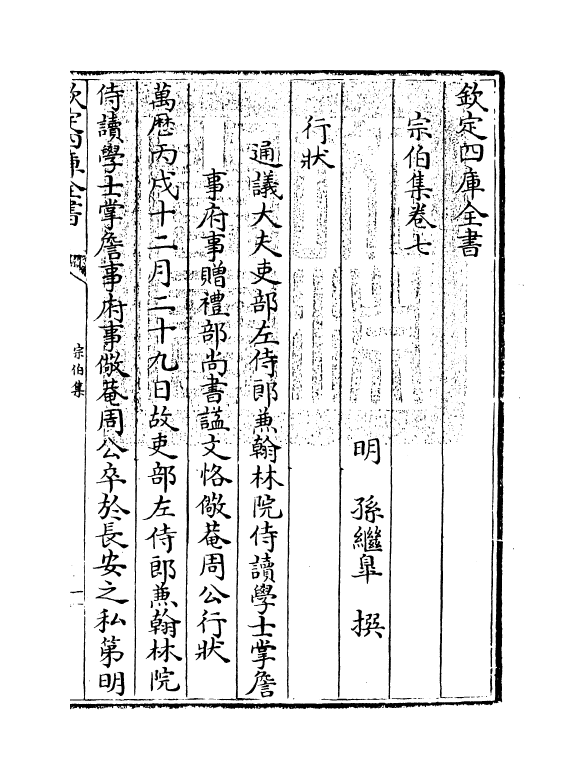 欽定四庫全書
宗伯集卷七
明 孫繼臯 撰
行狀
通議大夫吏部左侍郎兼翰林院侍讀學士掌詹
事府事贈禮部尚書諡文恪儆菴周公行狀
萬歴丙戌十二月二十九日故吏部左侍郎兼翰林院
侍讀學士掌詹事府事儆菴周公卒於長安之私第明
欽定四庫全書
宗伯集
一